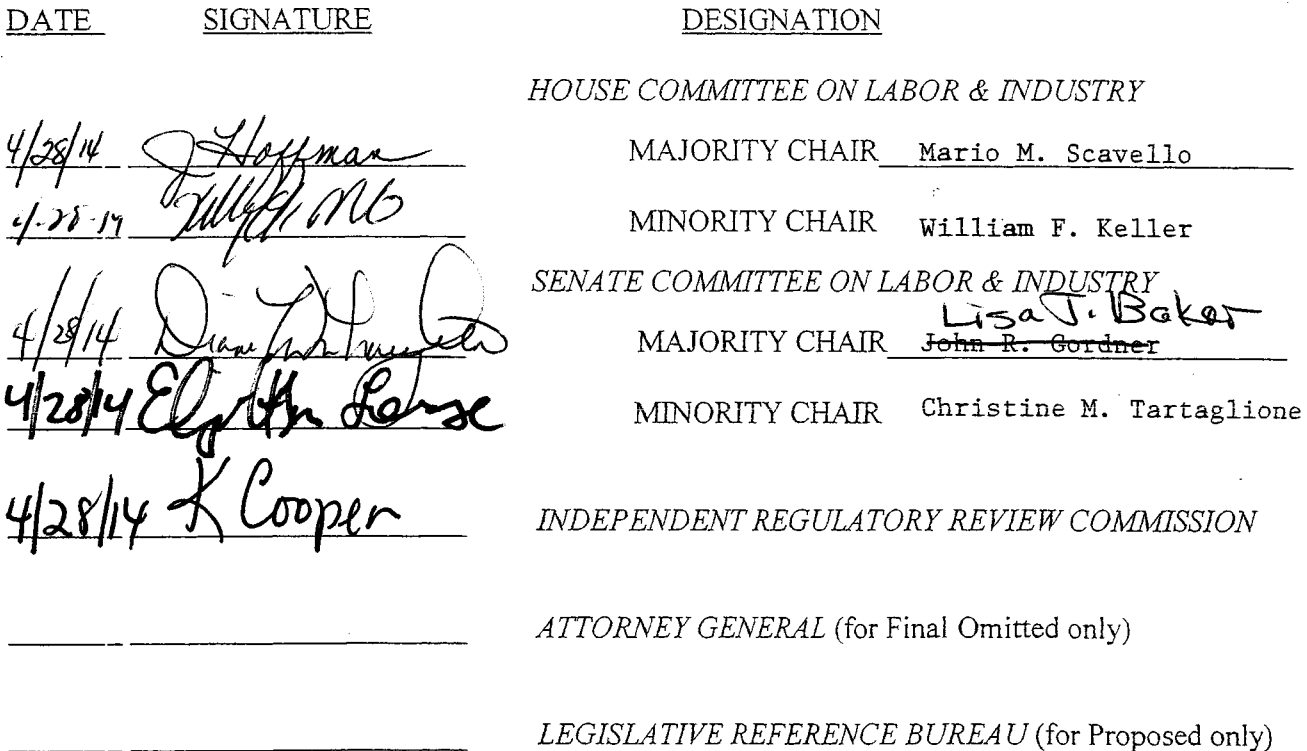 DATE SIGNATURE DESIGNATION
HOUSE COMMITTEE ON LABOR & INDUSTRY
4/28/14 J Hoffman MAJORITY CHAIR Mario M. Scavello
4-28-14 MINORITY CHAIR William F. Keller
SENATE COMMITTEE ON LABOR & INDUSTRY
Lisa J. Baker
4/28/14 Diane MAJORITY CHAIR John R. Gordner
4/28/14 MINORITY CHAIR Christine M. Tartaglione
4/28/14 K Cooper INDEPENDENT REGULATORY REVIEW COMMISSION
ATTORNEY GENERAL (for Final Omitted only)
LEGISLATIVE REFERENCE BUREAU (for Proposed only)